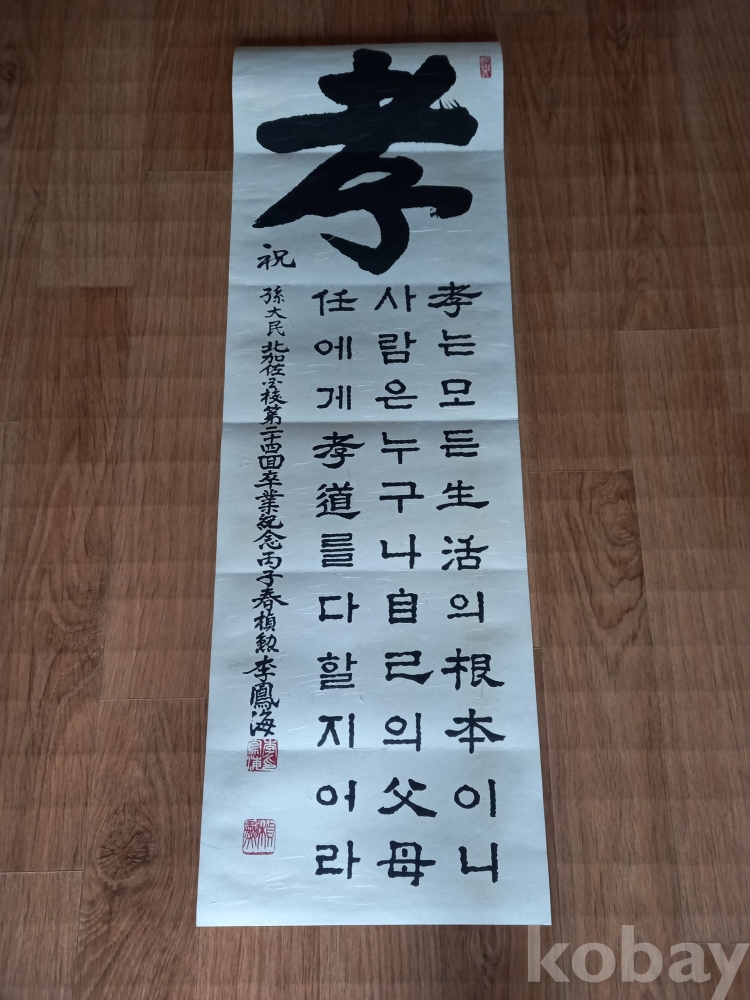 孝
孝는모든生活의根本이니
사람은누구나自己의父母
任에게孝道를다할지어라
祝
孫大民北加佐国校第二十四回卒業紀念丙子春楨勲李鳳海
kobay